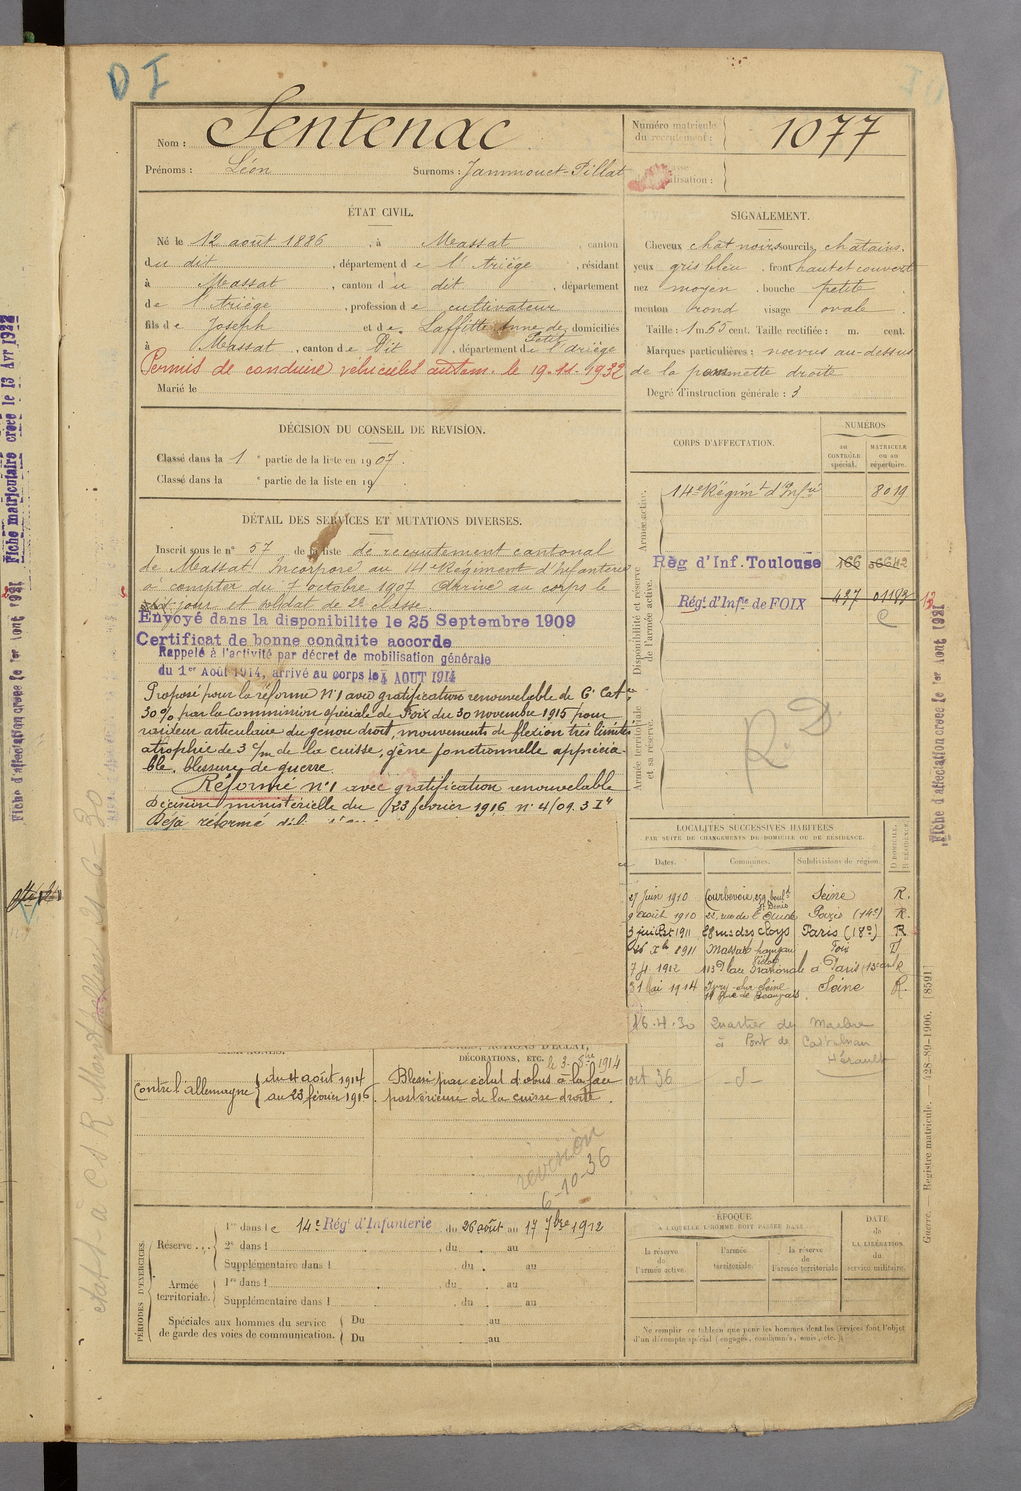 D I
Nom : Sentenac
Numéro matricule du recrutement : 1077
Prénoms : Léon Surnoms : Jammouet-Pillat
ÉTAT CIVIL.
Né le 12 août 1886, à Massat, canton
du dit, département de l'Ariège, résidant
à Massat, canton du dit, département
de l'Ariège, profession de cultivateur
fils de Joseph et de Laffitte Anne de Petit domiciliés
à Massat, canton de Dit, département de l'ariège
Permis de conduire véhicules autom. le 19-11-1932
Marié le
SIGNALEMENT.
Cheveux chat noirs sourcils chatains.
yeux gris bleu, front haut et couvert
nez moyen, bouche petite
menton rond visage ovale
Taille : 1 m. 65 cent. Taille rectifiée : m. cent.
Marques particulières : noevus au-dessus
de la pommette droite
Degré d'instruction générale : 3
DÉCISION DU CONSEIL DE REVISION.
Classé dans la 1e partie de la liste en 1907.
Classé dans la e partie de la liste en 19
CORPS D'AFFECTATION.
NUMÉROS
au CONTRÔLE spécial.
MATRICULE ou au répertoire.
Armée active.
14e Régimt d'Infie 8019
Disponibilité et réserve de l'armée active.
Rég d'Inf. Toulouse 166 36642
Régt. d'Infie de FOIX 437 01183
C
Armée territoriale et sa réserve.
R.D
DÉTAIL DES SERVICES ET MUTATIONS DIVERSES.
Inscrit sous le n° 57 de la liste de recrutement cantonal
de Massat Incorporé au 14e Régiment d'Infanterie
à compter du 7 octobre 1907 Arrivé au corps le
dit jour et soldat de 2e classe.
Envoyé dans la disponibilite le 25 Septembre 1909
Certificat de bonne conduite accorde
Rappelé à l'activité par décret de mobilisation générale
du 1er Août 1914, arrivé au corps le 4 AOUT 1914
Proposé pour la réforme N°1 avec gratification renouvelable de 6e Catie
30% par la Commission spéciale de Foix du 30 novembre 1915 pour
raideur articulaire du genou droit, mouvements de flexion très limités
atrophie de 3 c/m de la cuisse, gêne fonctionnelle apprécia-
ble, blessure de guerre.
Réformé N°1 avec gratification renouvelable
Décision ministérielle du 23 février 1916 n° 4/09.3 Ir
Déjà réformé
LOCALITÉS SUCCESSIVES HABITÉES
PAR SUITE DE CHANGEMENTS DE DOMICILE OU DE RÉSIDENCE.
Dates. Communes. Subdivisions de région. D DOMICILE. R RÉSIDENCE.
27 juin 1910 Courbevoie, bould St Denis Seine R.
9 août 1910 22, rue de l'Aude Paris (14e) R.
3 juillet 1911 28 rue des Cloys Paris (18e) R
26 Xbre 1911 Massat Foix D
7 1912 113 Place Nationale à Paris (13e arrt) R
31 Mai 1914 Ivry-sur-Seine 19 Rue de Beauvais Seine R.
16.4.30 Quartier de Maelve
à Pont de Castelnau
Hérault
oct 36 _d_
DÉCORATIONS, ETC. le 3. 1914
Contre l'allemagne du 4 août 1914
au 23 février 1916.
Blessé par éclat d'obus à la face
postérieure de la cuisse droite.
revision
6-10-36
PÉRIODES D'EXERCICES.
Réserve... 1re dans le 14e Rég. d'Infanterie du 26 août au 17 7bre 1912
2e dans l , du au
Supplémentaire dans l du au
Armée territoriale. 1re dans l , du au
Supplémentaire dans l , du au
Spéciales aux hommes du service Du au
de garde des voies de communication. Du au
ÉPOQUE
A LAQUELLE L'HOMME DOIT PASSER DANS
la réserve de l'armée active.
l'armée territoriale.
la réserve de l'armée territoriale
DATE
de
LA LIBÉRATION
du
service militaire.
Ne remplir ce tableau que pour les hommes dont les services font l'objet
d'un décompte spécial (engagés, condamnés, omis, etc.)
Guerre. — Registre matricule. — 428-89-1906. [8591]
Fiche d'affectation creee le 1er Aout 1931
Fiche d'affectation creee le 1er Aout 1931
Fiche matriculaire creee le 13 Avr 1932